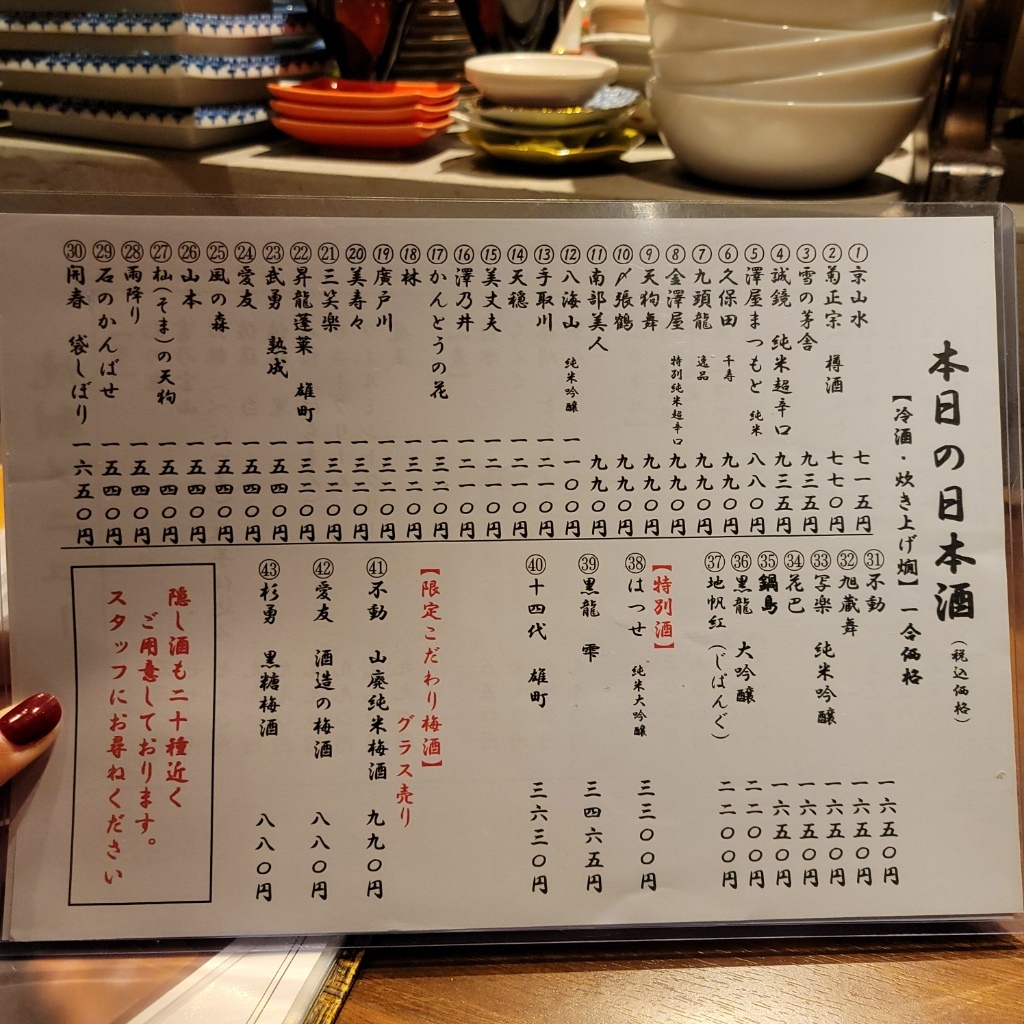 本日の日本酒（税込価格）
【冷酒・炊き上げ燗】一合価格
①京山水 七一五円
②菊正宗 樽酒 七七〇円
③雪の茅舎 九三五円
④誠鏡 純米超辛口 九三五円
⑤澤屋まつもと 純米 八八〇円
⑥久保田 千寿 九九〇円
⑦九頭龍 逸品 九九〇円
⑧金澤屋 特別純米超辛口 九九〇円
⑨天狗舞 九九〇円
⑩〆張鶴 九九〇円
⑪南部美人 九九〇円
⑫八海山 純米吟醸 一一〇〇円
⑬手取川 一二一〇円
⑭天穏 一二一〇円
⑮美丈夫 一二一〇円
⑯澤乃井 一二一〇円
⑰かんとうの花 一三二〇円
⑱林 一三二〇円
⑲廣戸川 一三二〇円
⑳美寿々 一三二〇円
㉑三笑楽 一三二〇円
㉒昇龍蓬莱 雄町 一三二〇円
㉓武勇 熟成 一五四〇円
㉔愛友 一五四〇円
㉕風の森 一五四〇円
㉖山本 一五四〇円
㉗杣（そま）の天狗 一五四〇円
㉘雨降り 一五四〇円
㉙石のかんばせ 一五四〇円
㉚開春 袋しぼり 一六五〇円
㉛不動 一六五〇円
㉜旭蔵舞 一六五〇円
㉝写楽 純米吟醸 一六五〇円
㉞花巴 一六五〇円
㉟鍋島 一六五〇円
㊱黒龍 大吟醸 二二〇〇円
㊲地帆紅（じぱんぐ） 二二〇〇円
【特別酒】
㊳はつせ 純米大吟醸 三三〇〇円
㊴黒龍 雫 三四六五円
㊵十四代 雄町 三六三〇円
【限定こだわり梅酒】
グラス売り
㊶不動 山廃純米梅酒 九九〇円
㊷愛友 酒造の梅酒 八八〇円
㊸杉勇 黒糖梅酒 八八〇円
隠し酒も二十種近く
ご用意しております。
スタッフにお尋ねください